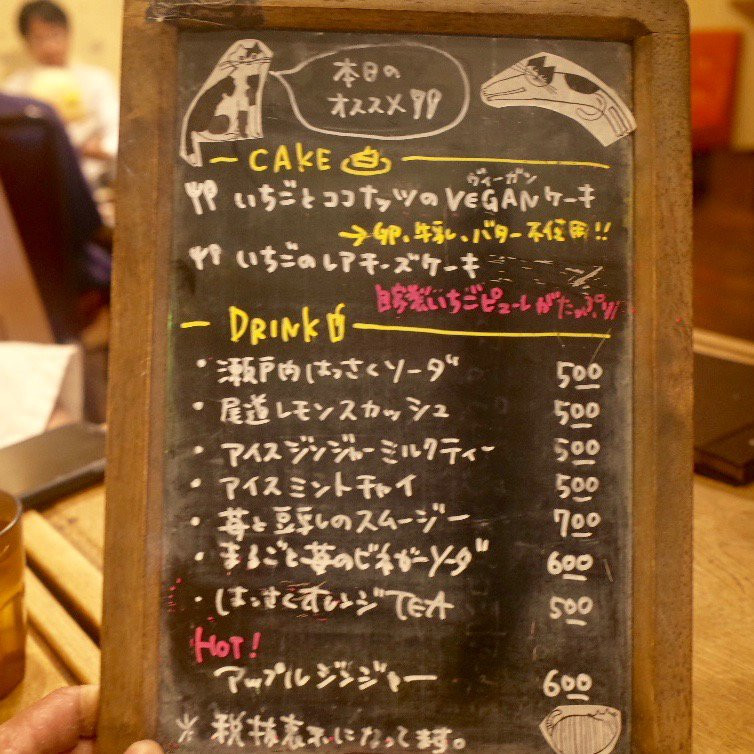 本日の
オススメ
CAKE
ヴィーガン
いちごとココナッツのVEGANケーキ
→卵、牛乳、バター不使用!!
いちごのレアチーズケーキ
自家製いちごピューレがたっぷり
DRINK
・瀬戸内はっさくソーダ 500
・尾道レモンスカッシュ 500
・アイスジンジャーミルクティー 500
・アイスミントチャイ 500
・苺と豆乳のスムージー 700
・まるごと苺のビネガーソーダ 600
・はっさくオレンジTEA 500
HOT!
アップルジンジャー 600
※税抜表示になってます。